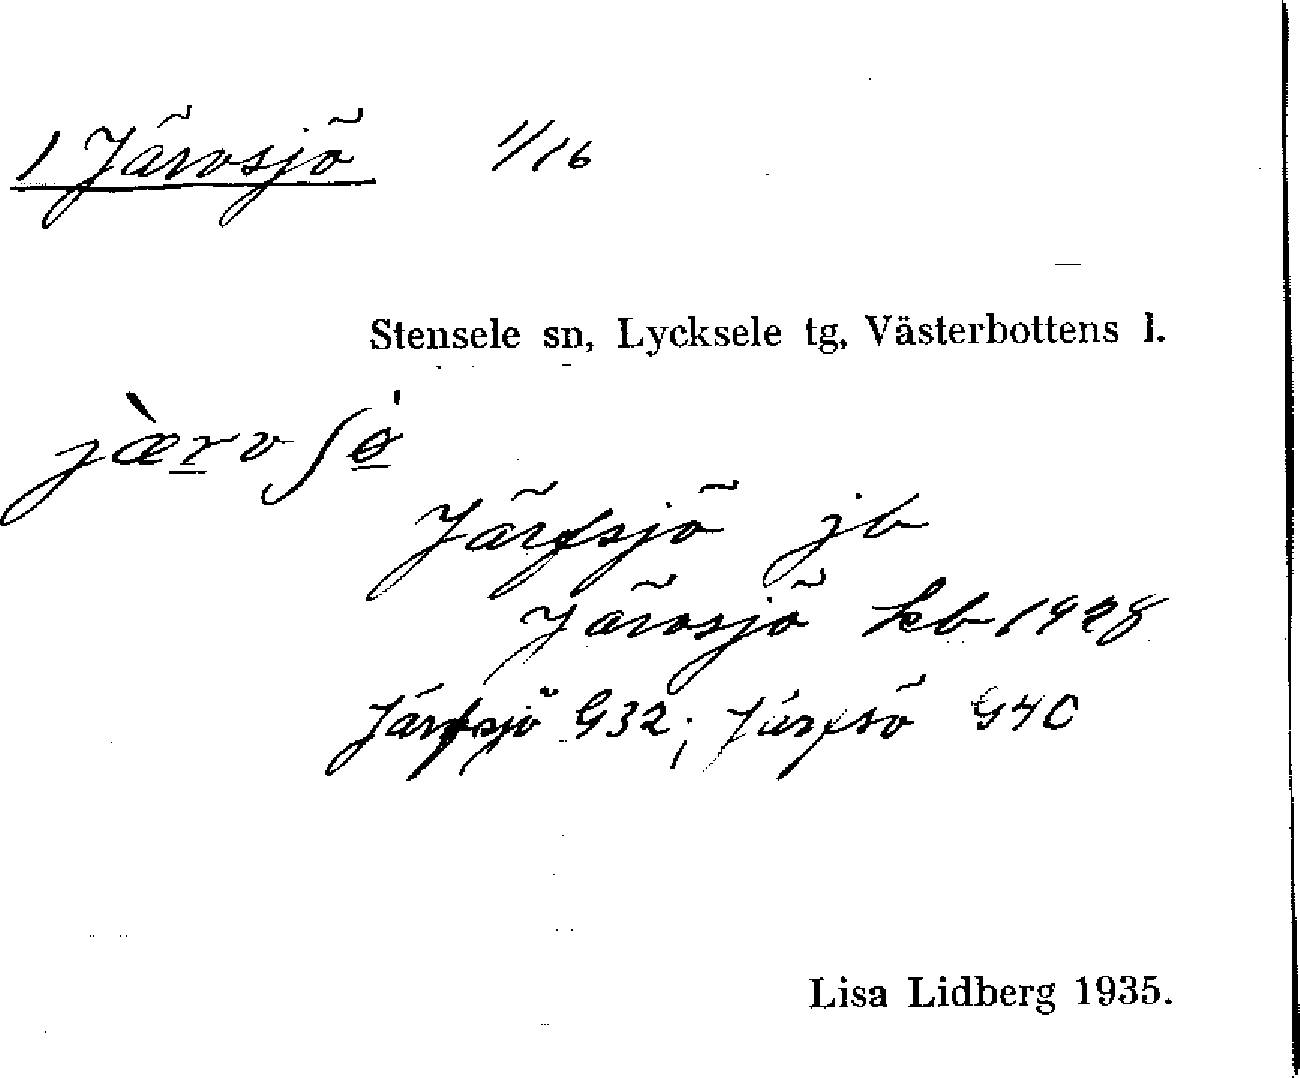 1 Järvsjö 1/16
Stensele sn, Lycksele tg, Västerbottens l.
jæ̀rvʃö́
Järfsjö jb
Järvsjö kb 1928
Järfsjö G32; Järfsö G40
Lisa Lidberg 1935.